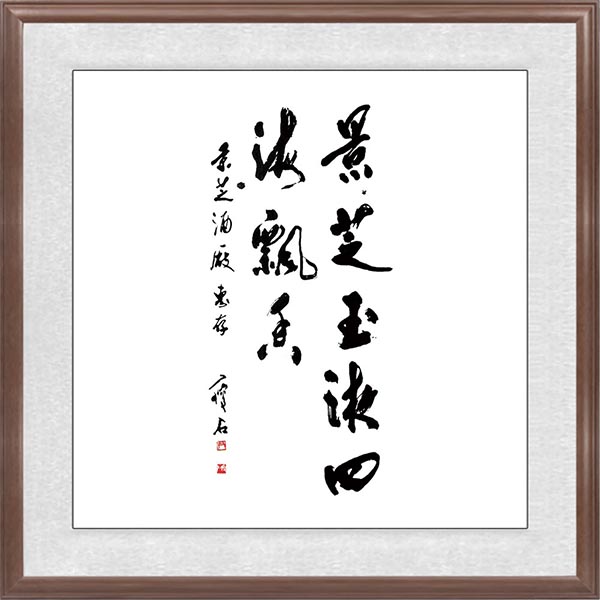 景芝玉液四
海飘香
景芝酒厰惠存
石